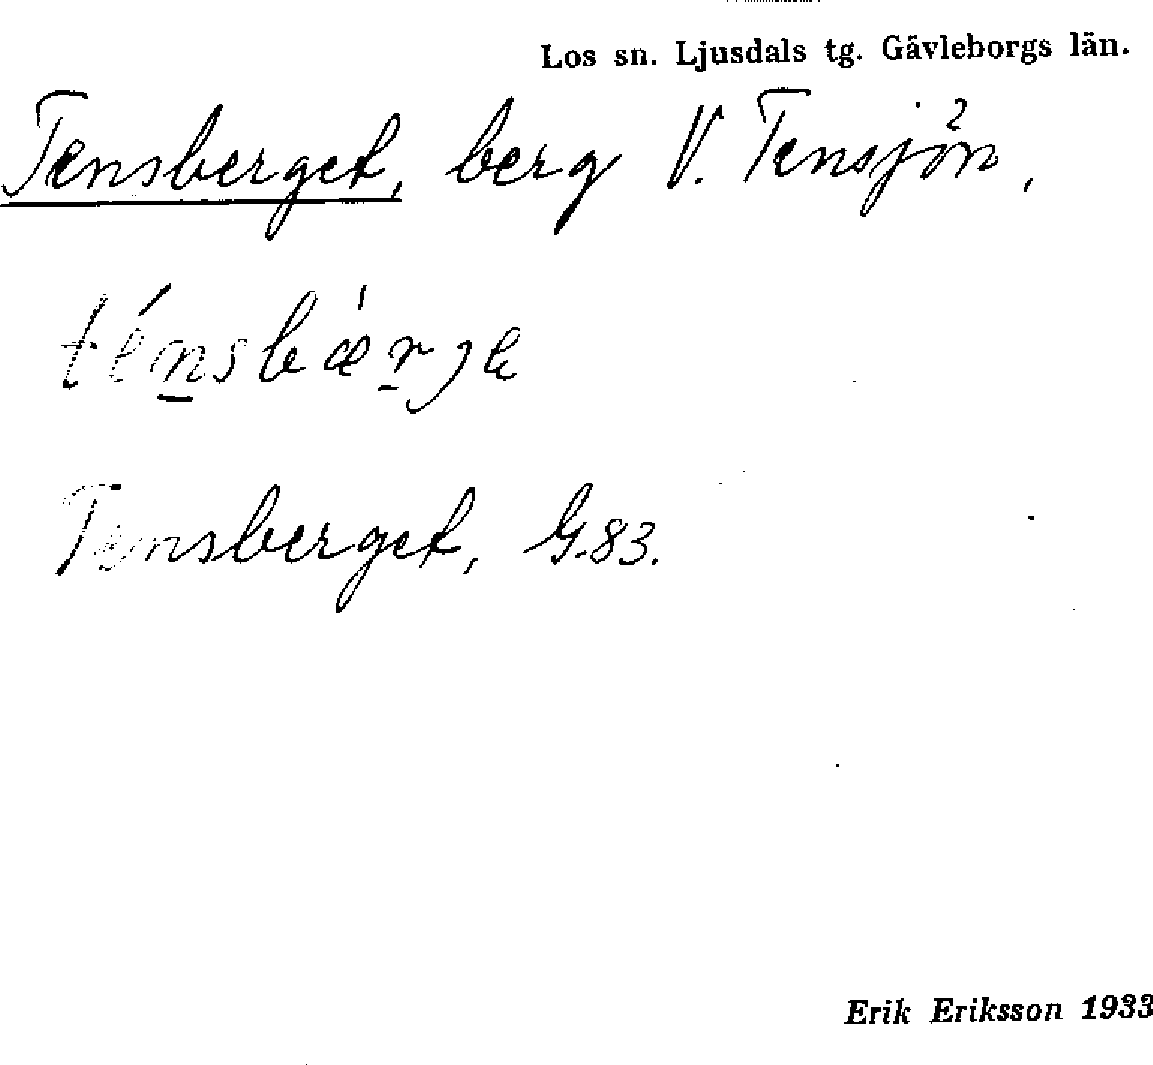 Los sn. Ljusdals tg. Gävleborgs län.
Tensberget, berg V. Tensjön,
ténsbæ̍rge
Tensberget, G.83.
Erik Eriksson 1933